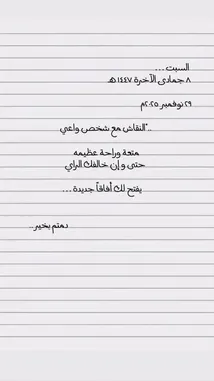 السبت ...
٨ جمادى الآخرة ١٤٤٧ هـ
٢٩ نوفمبر ٢٠٢٥م
.."النقاش مع شخص واعي
متعة وراحة عظيمه
حتى و إن خالفك الراي
يفتح لك أفاقاً جديدة ...
دمتم بخير ..